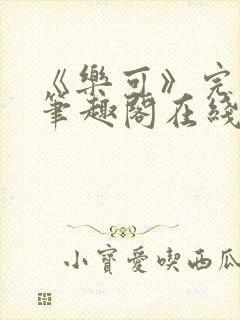 《樂可》完
筆趣閣在綫
小寶愛喫西瓜